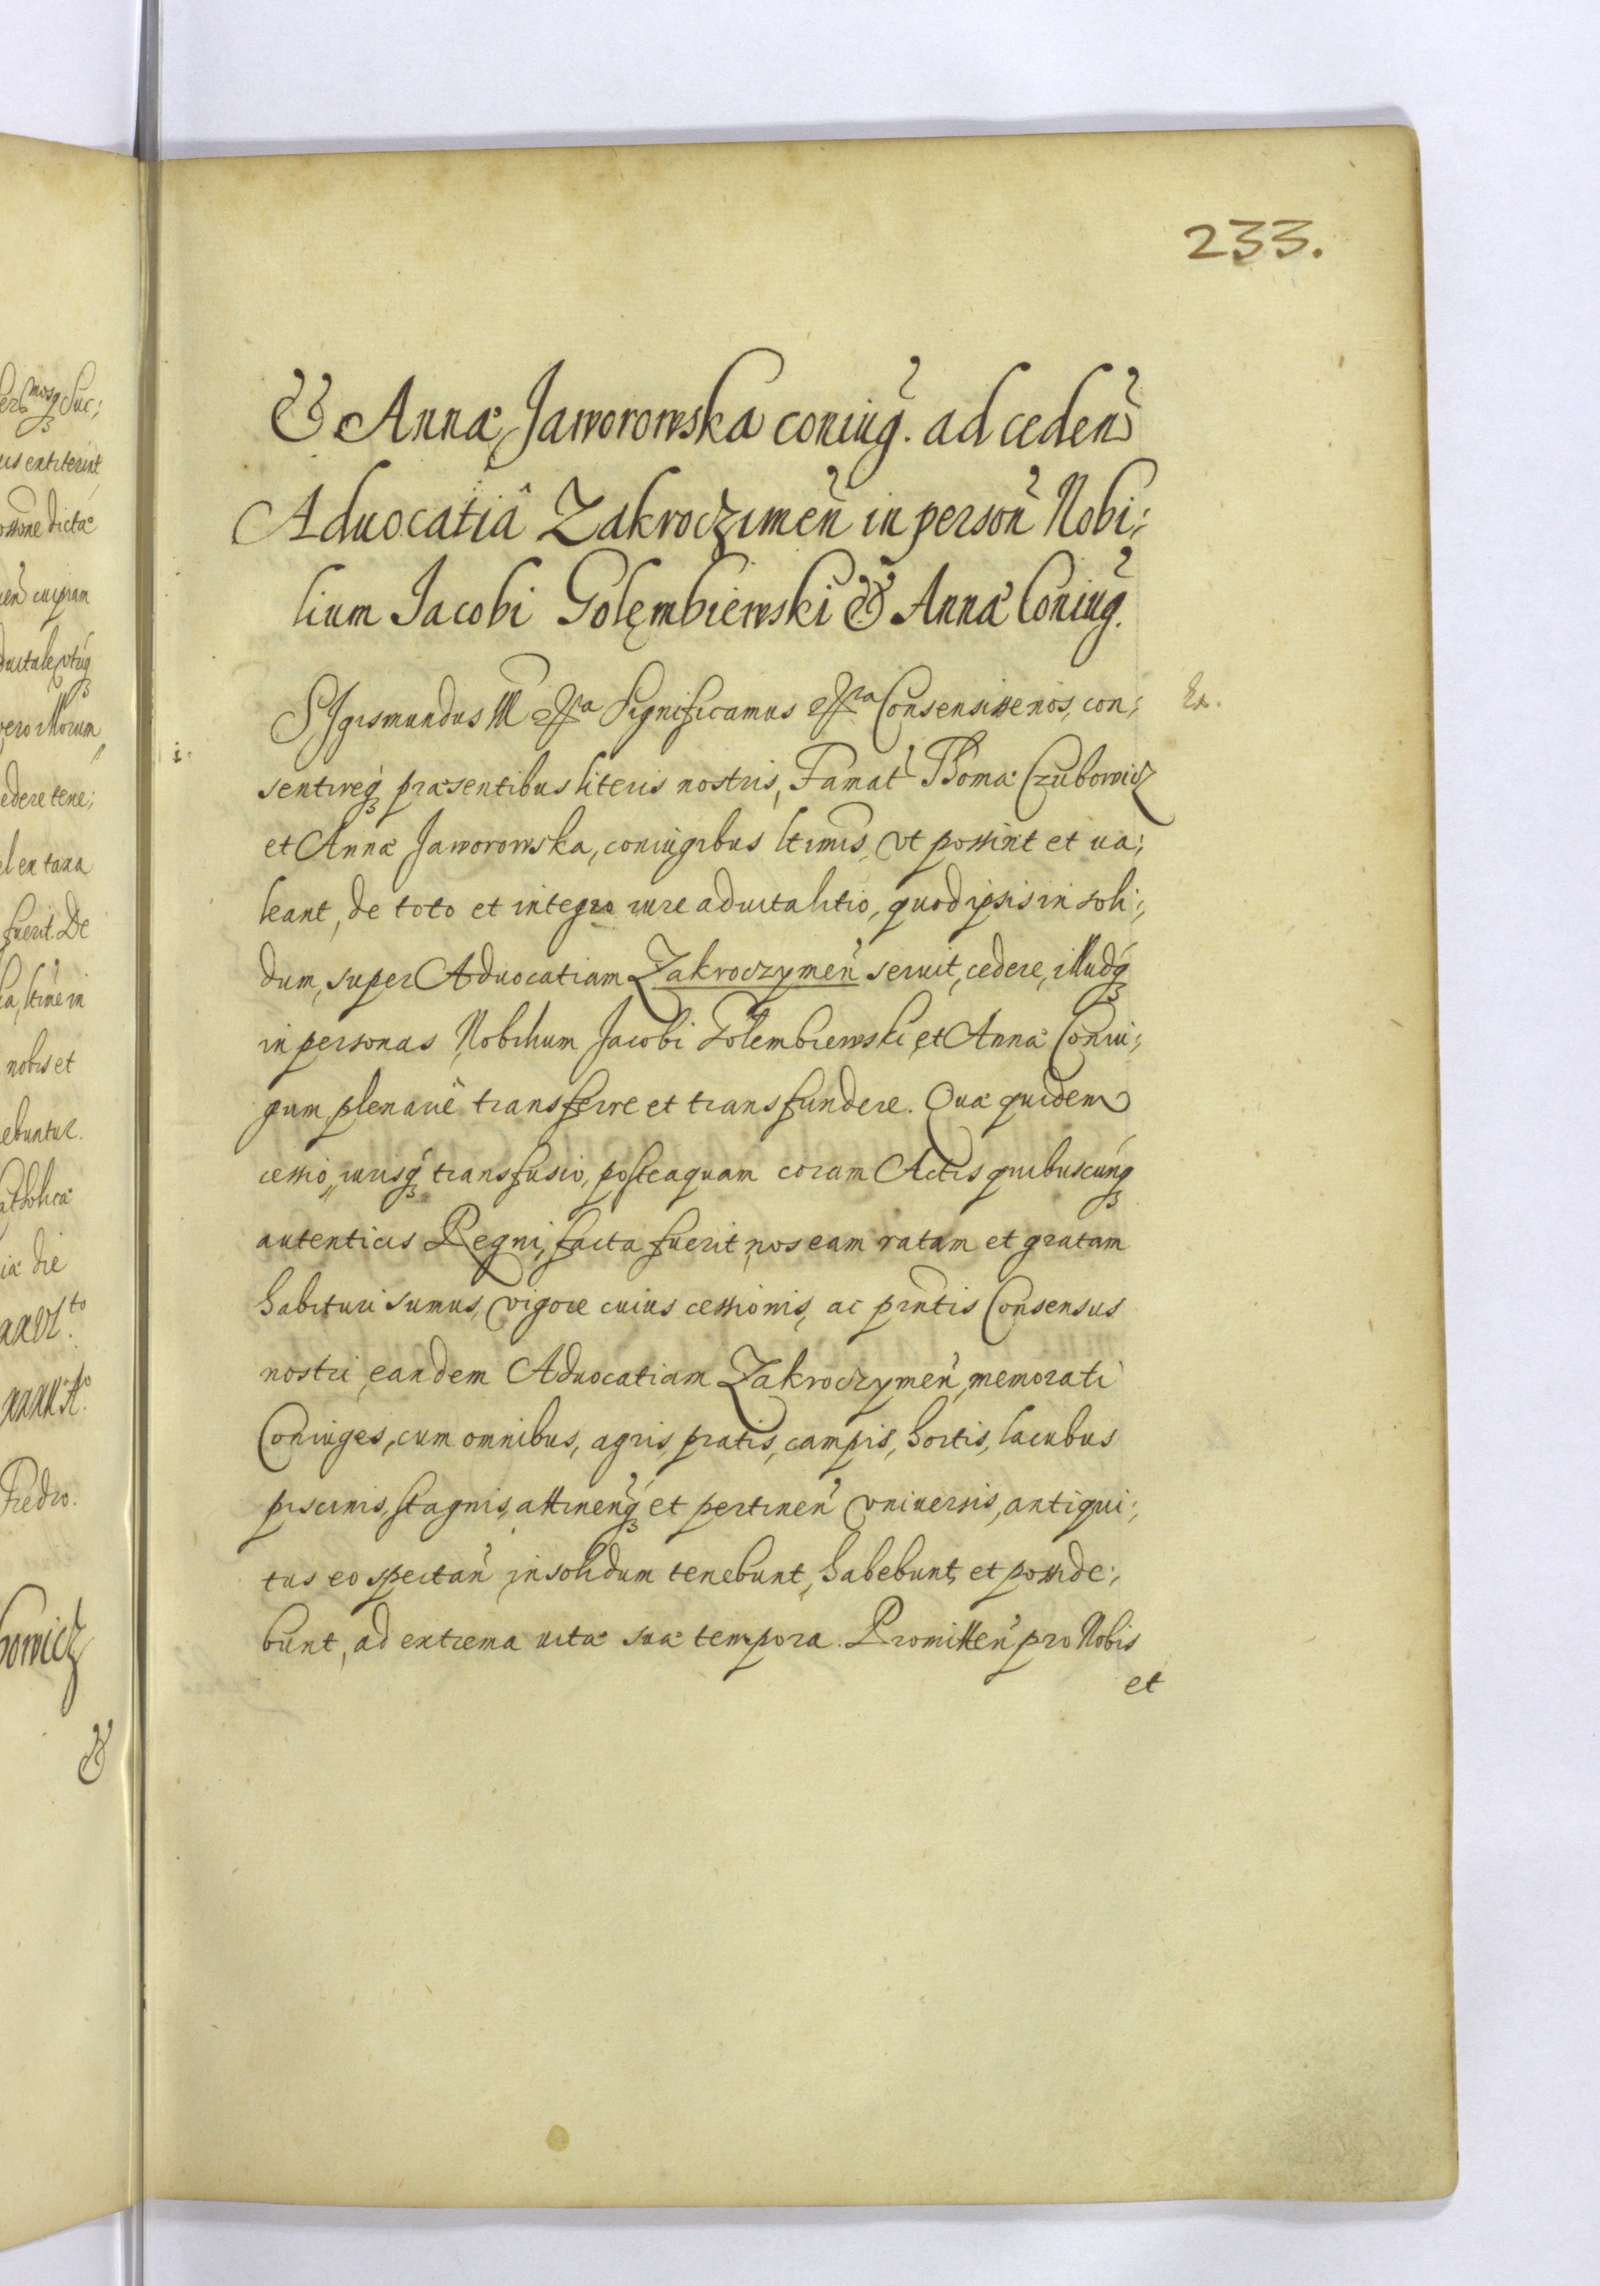 233.
& Annæ Jaworowska coniug. ad ceden
Aduocatiâ Zakroczimen in person Nobi;
lium Jacobi Golęmbiewski & Annæ Coniug.
Sigismundus III etc Significamus etc Consensisse nos, con;
Ex.
sentireq præsentibus literis nostris, Famat Thomæ Czubowicz
et Annæ Jaworowska, coniugibus ltimis, vt possint et ua;
leant, de toto et integro iure aduitalitio, quod ipsis in soli;
dum, super Aduocatiam Zakroczymen seruit, cedere, illudq
in personas Nobilium Jacobi Golembiewski et Annæ Coniu;
gum plenariè transferre et transfundere. Quæ quidem
cessio, iurisq transfusio, posteaquam coram Actis quibuscunq
autenticis Regni, facta fuerit, nos eam ratam et gratam
habituri sumus, vigore cuius cessionis, ac pntis Consensus
nostri, eandem Aduocatiam Zakroczymen, memorati
Coniuges, cum omnibus, agris, pratis, campis, hortis, lacubus
piscinis, stagnis, attinenq et pertinen vniuersis, antiqui;
tus eo spectan, in solidum tenebunt, habebunt, et posside;
bunt, ad extrema uitæ suæ tempora. Promitten pro Nobis
et